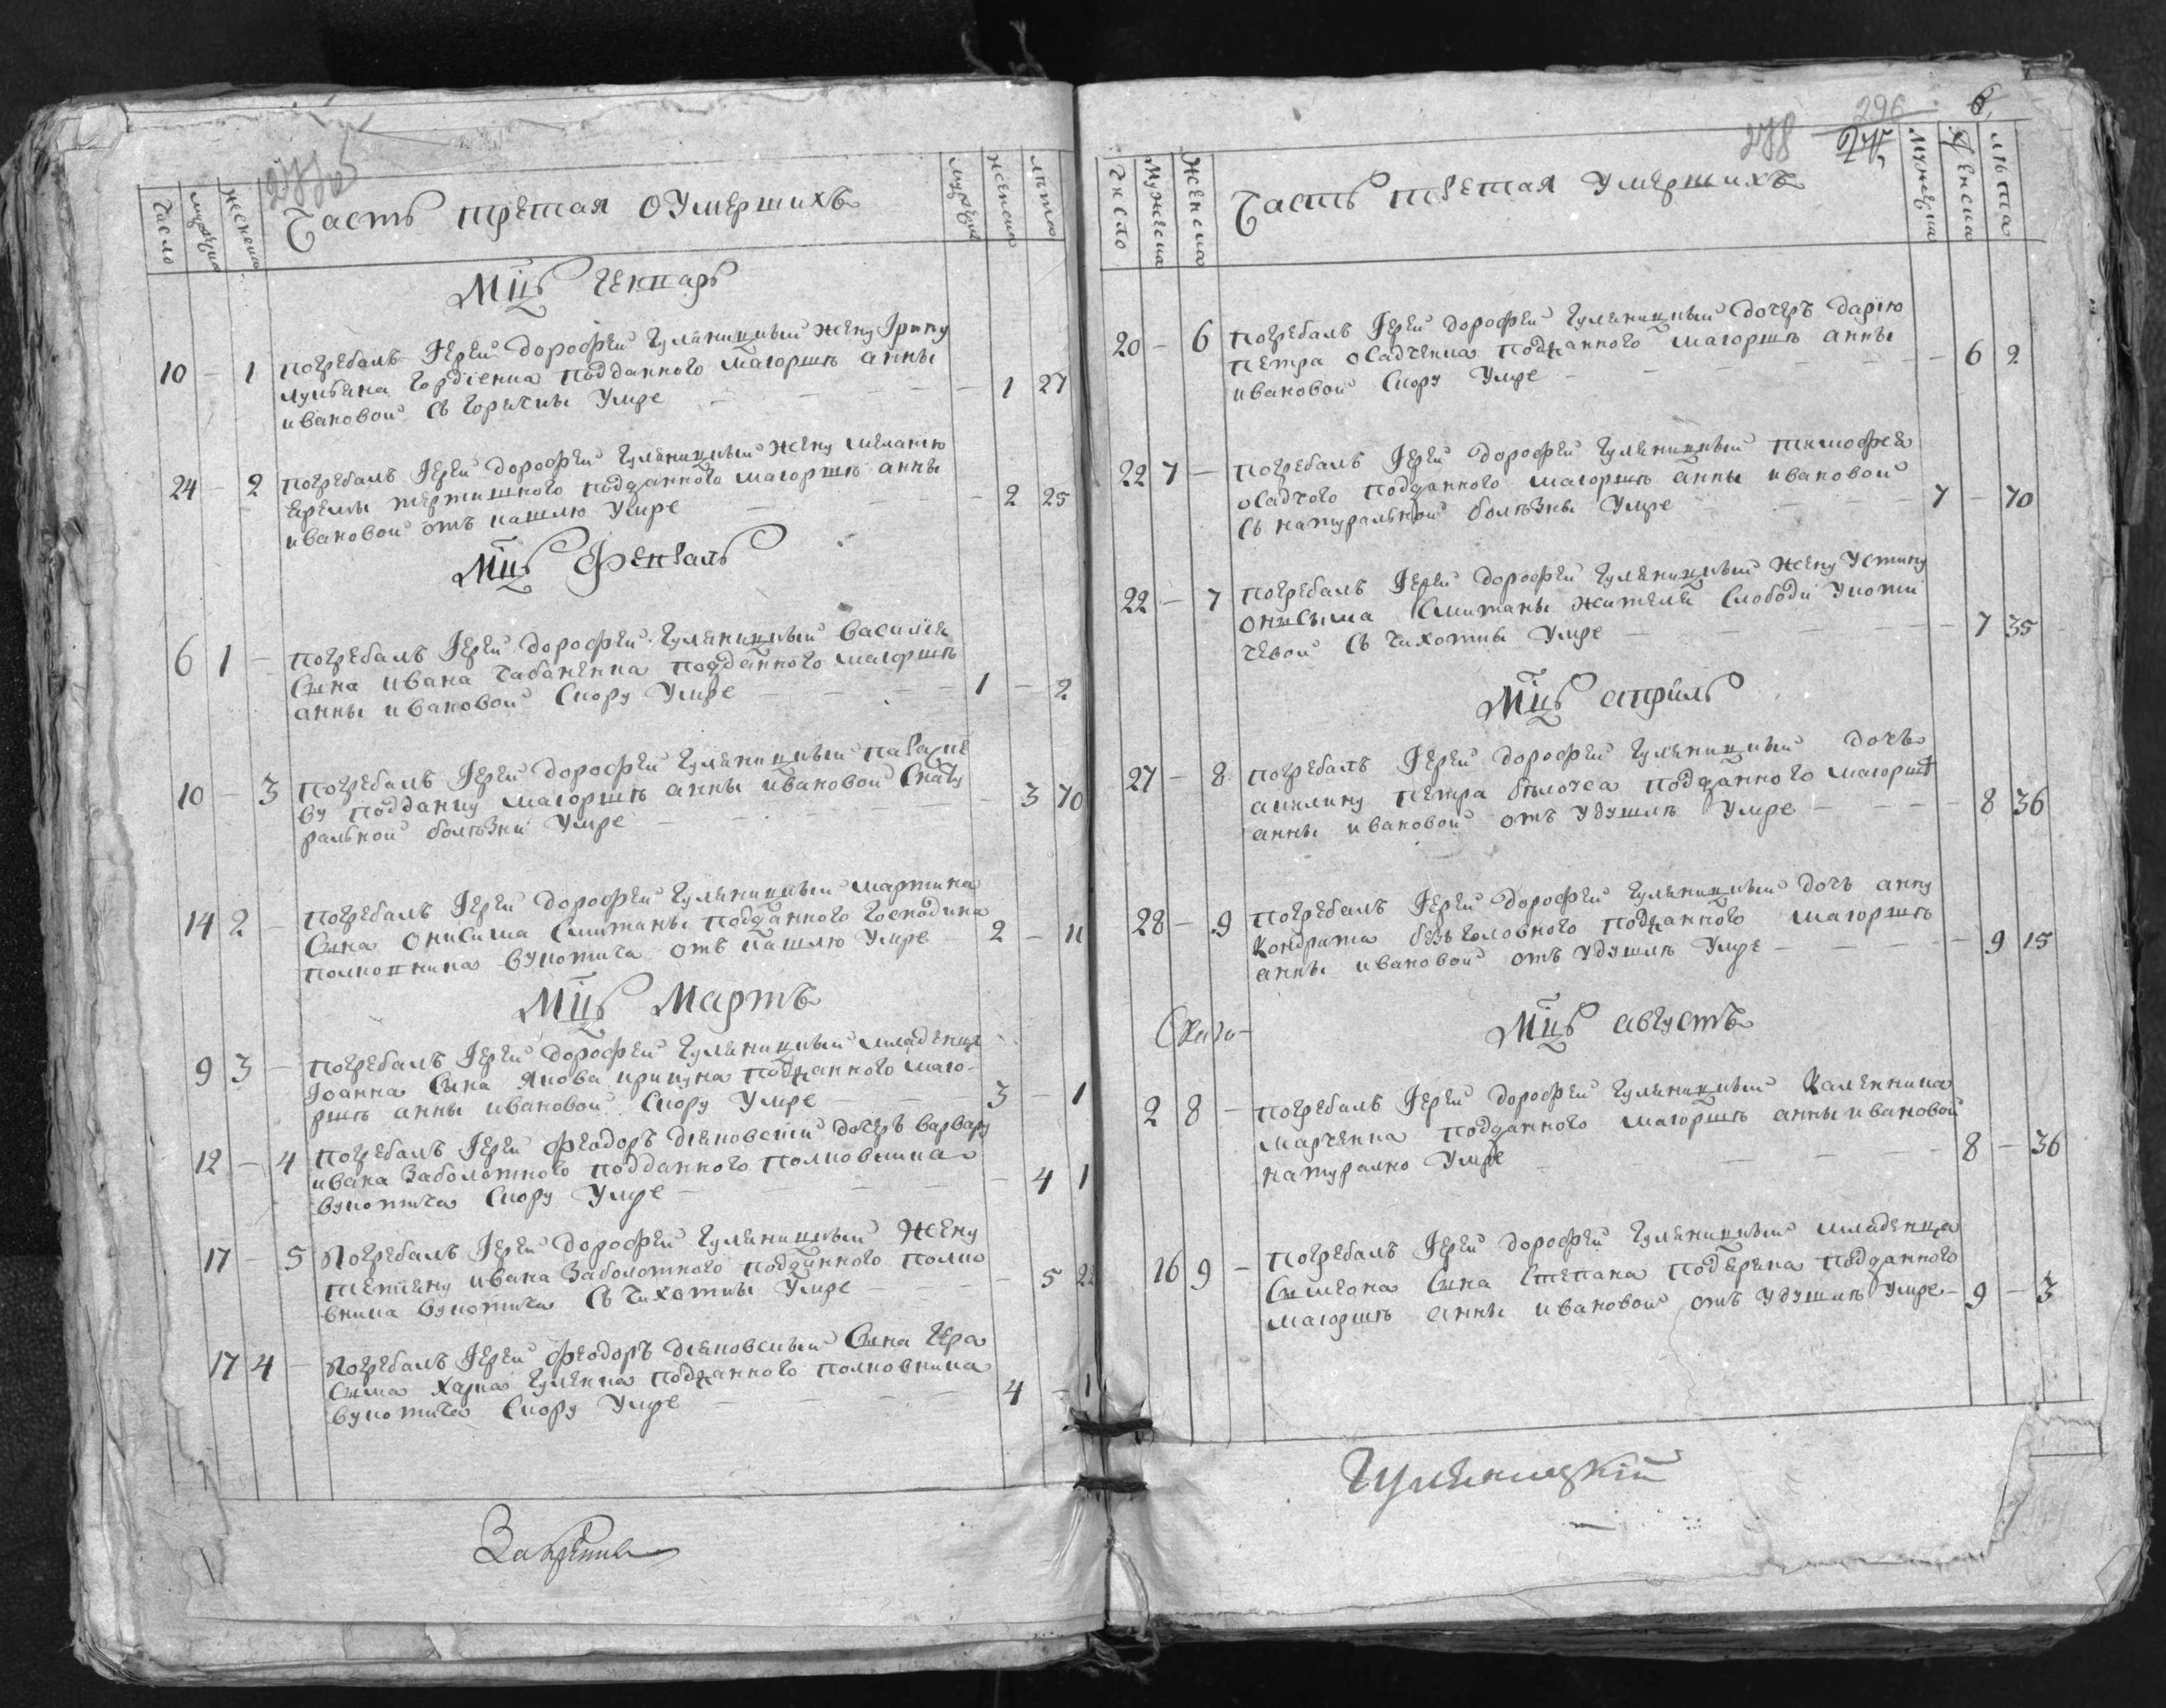 Число
мужеска
женска
Часть претая Оумершихъ
мужеска
женска
лѣта
Мцъ Генварь
10 – 1 погребалъ Іерей дорофей гуляницкый жену Ірину
лукьяна гордіенка подданного маіоршѣ анны
ивановой съ горячкы умре – 1 27
24 – 2 погребалъ Іерей дорофей гуляницкый жену меланію
еремы подданного маіоршѣ анны
ивановой отъ кашлю умре – 2 25
Мцъ Февраль
6 1 – погребалъ Іерей дорофей гуляницкый василія
сына ивана чабаненка подданного маіоршѣ
анны ивановой скору умре 1 – 2
10 – 3 погребалъ Іерей дорофей гуляницкый
ву подданку маіоршѣ анны ивановой снату
ральной болѣзни умре – 3 70
14 2 – погребалъ Іерей дорофей гуляницкый мартина
сына онисима смитаны подданного господина
полковника вукотича отъ кашлю умре 2 – 11
Мцъ Мартъ
9 3 – погребалъ Іерей дорофей гуляницкый младенца
Іоанна сына якова крикуна подданного маіо
ршѣ анны ивановой скору умре 3 – 1
12 – 4 погребалъ Іерей феодоръ дяковскій дочеръ варвару
ивана заболотного подданного полковника
вукотича скору умре – 4 1
17 – 5 погребалъ Іерей дорофей гуляницкый жену
ивана заболотного подданного полко
вника вукотича съ чихотки умре – 5 22
17 4 – погребалъ Іерей феодоръ дяковскый сына гера
сыма подданного полковника
вукотича скору умре 4 – 1
278
296
6
Число
Мужеска
Женска
Часть претая умершихъ
Мужеска
Женска
лѣта
20 – 6 погребалъ Іерей дорофей гуляницкый дочеръ дарію
петра осадченка подданного маіоршѣ анны
ивановой скору умре – 6 2
22 7 – погребалъ Іерей дорофей гуляницкый тимофея
осадчого подданного маіоршѣ анны ивановой
съ натуральной болѣзны умре 7 – 70
22 – 7 погребалъ Іерей дорофей гуляницкый жену устину
онысыма смитаны жителя слободи укоти
чевой съ чихоткы умре – 7 35
Мцъ априль
27 – 8 погребалъ Іерей дорофей гуляницкый дочъ
акилину петра подданного маіоршѣ
анны ивановой отъ удушлѣ умре – 8 36
28 – 9 погребалъ Іерей дорофей гуляницкый дочъ анну
кондрата безъголовного подданного маіоршѣ
анны ивановой отъ удушлѣ умре – 9 15
Мцъ августъ
2 8 – погребалъ Іерей дорофей гуляницкый каленника
марченка подданного маіоршѣ анны ивановой
натурално умре 8 – 36
16 9 – погребалъ Іерей дорофей гуляницкый младенца
симеона сына степана подданного
маіоршѣ анны ивановой отъ удушлѣ умре 9 – 3
Гуляницкій